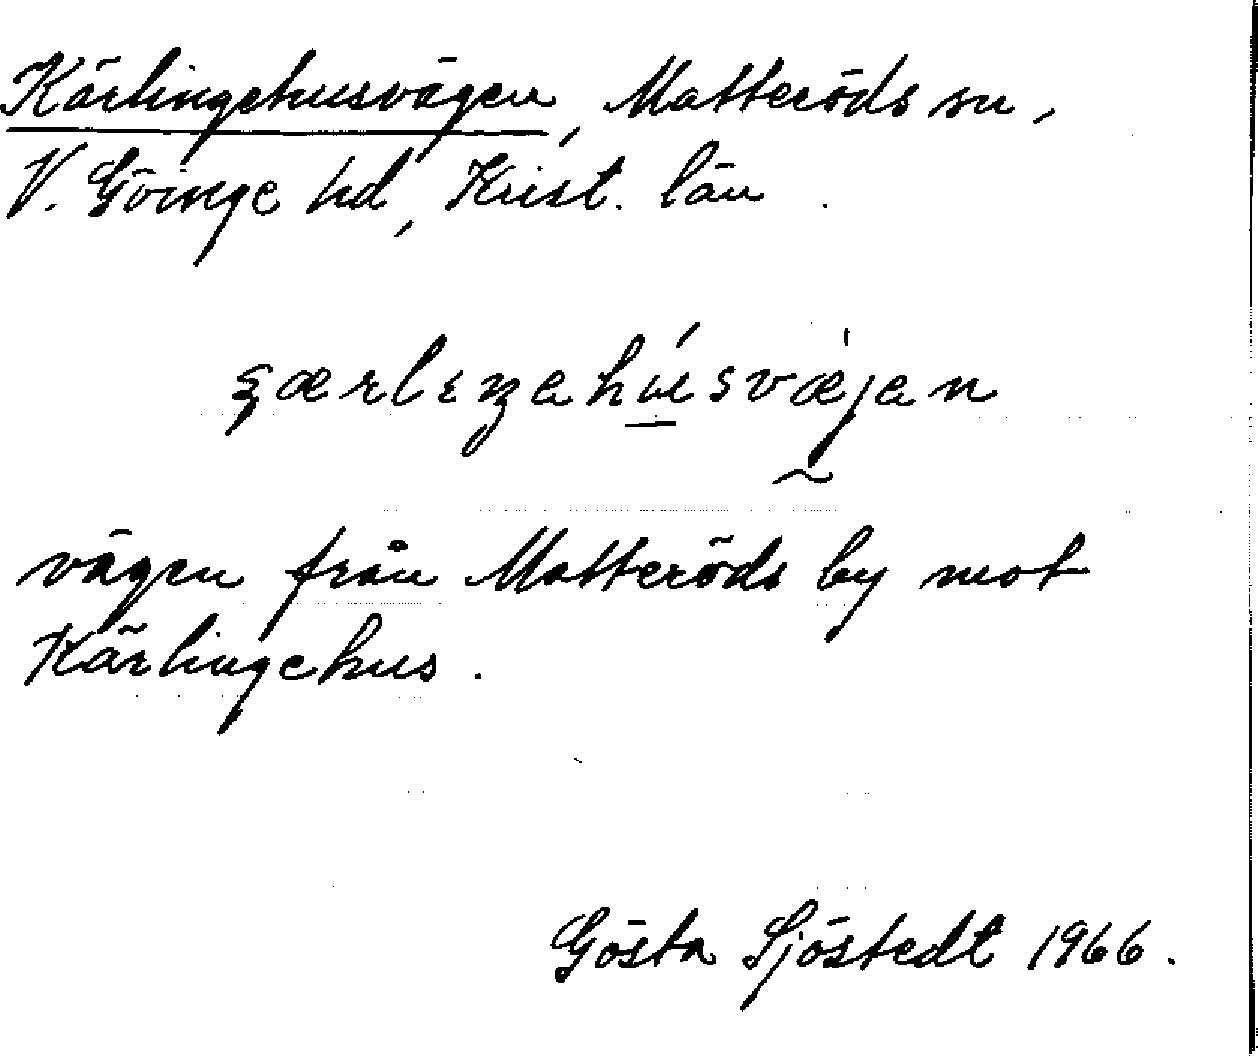 Kärlingehusvägen, Matteröds sn,
V. Göinge hd, Krist. län.
vägen från Matteröds by mot
Kärlingehus.
Gösta Sjöstedt 1966.